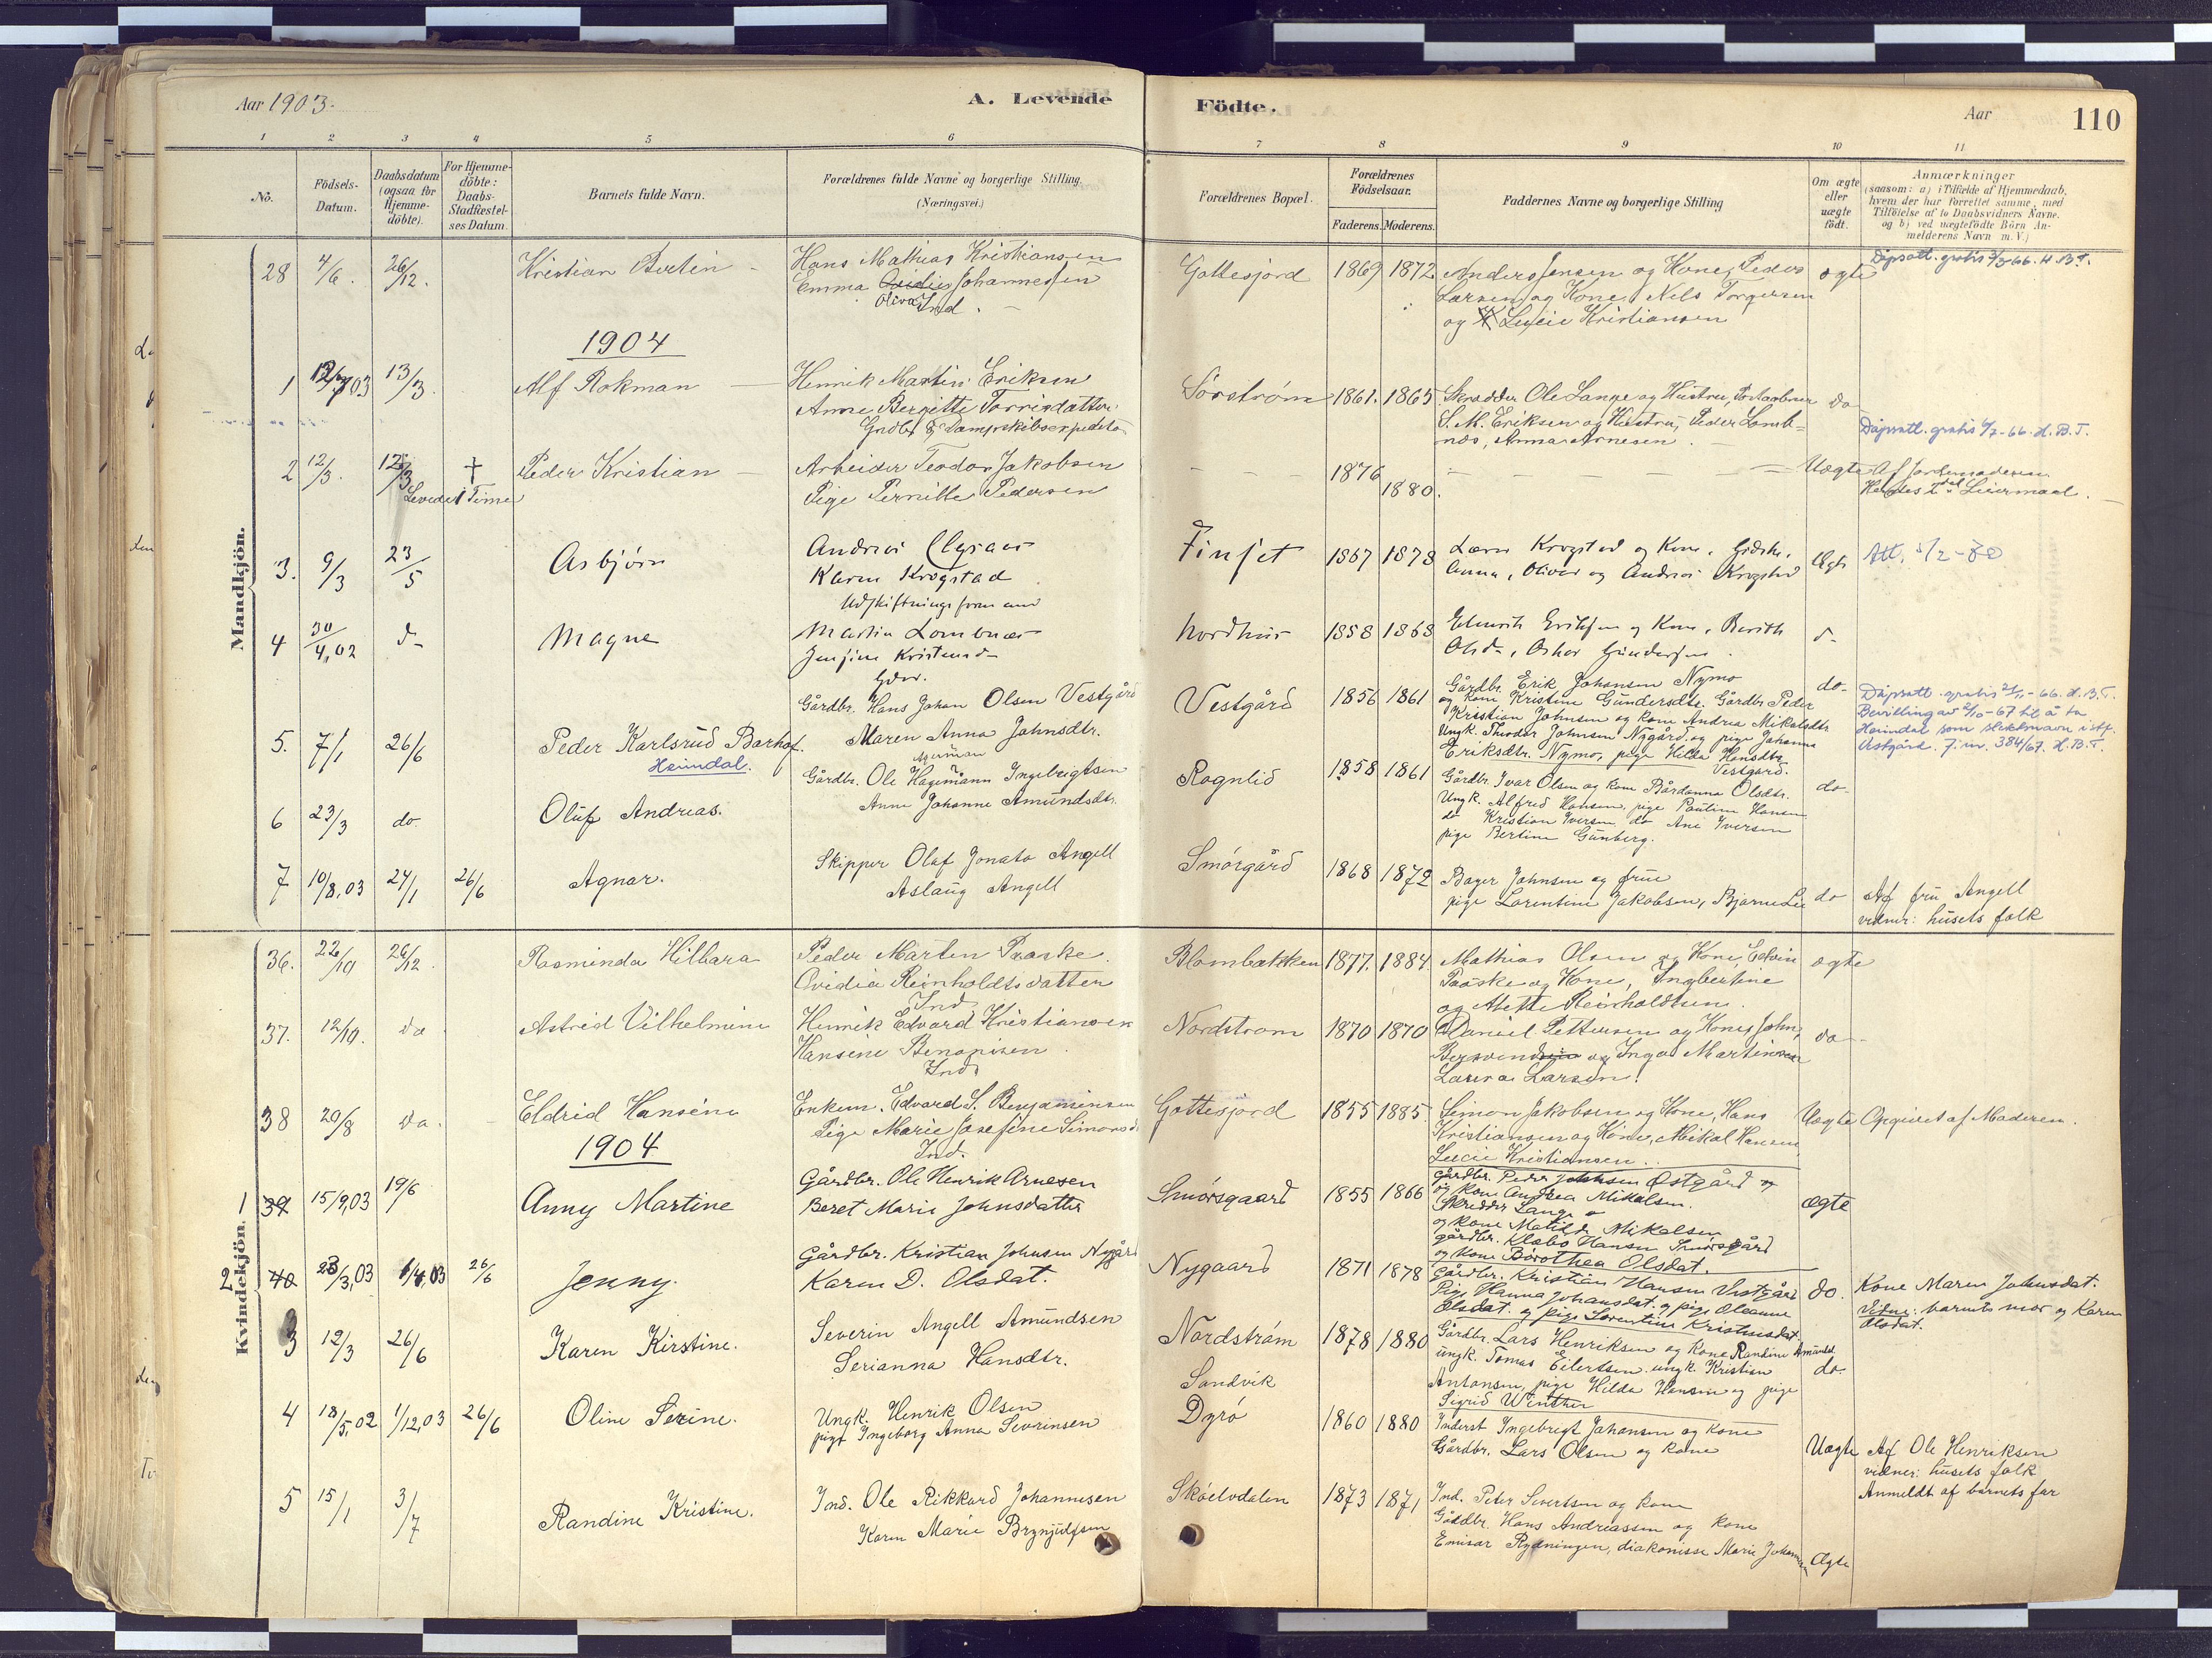 Aar 1903.
A. Levende
Födte.
Aar
110
1 2 3 4 5 6 7 8 9 10 11
No.
Födsels-
Datum.
Daabsdatum
(ogsaa for
Hjemme-
döbte).
For Hjemme-
döbte:
Daabs-
Stadfæstel-
ses Datum.
Barnets fulde Navn.
Forældrenes fulde Navne og borgerlige Stilling.
(Næringsvei.)
Forældrenes Bopæl.
Forældrenes
Födselsaar.
Faderens. Moderens.
Faddernes Navne og borgerlige Stilling
Om ægte
eller
uægte
födt.
Anmærkninger
(saasom: a) i Tilfælde af Hjemmedaab,
hvem der har forrettet samme, med
Tilföielse af to Daabsvidners Navne.
og b) ved uægtefödte Börn An-
melderens Navn m. V.)
Mandkjön.
28 4/6. 26/12. Kristian Bertin
Hans Mathias Kristiansen
Emma Ovidie Johannessen
Oliva Ind.
Gottesjord 1869 1872
Anders Jensen og Kone, Peder
Larsen og Kone, Nels Torgersen
og Lucie Kristiansen
ægte
Dåpsatt. gratis 2/3 66. H.B.T.
1904
1 13/3. Alf Rokman
Henrik Martin Eriksen
Anne Bergitte Torrisdatter
Gndbr & Dampskibsexpeditør
Sørstrøm 1861. 1865
Skrædder Ole Lange og Hustru,
S. M. Eriksen og Hustru, Peder Lomb-
næs, Anna Arnesen.
do
Dåpsatt. gratis 6/7-66. H.B.T.
2 12/3. 12/3 † Peder Kristian
Levedet Time
Arbeider Teodor Jakobsen
Pige Pernille Pedersen
1876
1880.
Uægte Af Jordemoderen
Hendes 2det Leiermaal.
3. 9/3 23/5 Asbjørn
Andreas
Karen Krogstad
Udskiftningsformand
Finset 1867 1878
Lærer Krogstad og Kone,
Anna, Oliver og Andreas Krogstad
Ægte
Att. 5/2-80
4 30/4,02 d- Magne
Martin Lombnæs
Jensine Kristensd-
Gdbr.
Nordhus 1858 1868
Henrik Eriksen og Kone, Berith
Olsd-, Oskar Gundersen.
d-
5. 7/1 26/6 Peder Karlsrud Barhof.
Heimdal.
Gårdbr. Hans Johan Olsen Vestgård
Maren Anna Johnsdtr.
Vestgård 1856 1861
Gårdbr. Erik Johansen Nymo
og Kone Kristine Gundersdtr. Gårdbr Peder
Kristian Johnsen og kone Andrea Mikalsdtr
Ungk. Theodor Johnsen Nygård og pige Johanna
Eriksdtr. Nymo, pige Hilda Hansdtr.
Vestgard.
do-
Dåpsatt. gratis 21/11-66. H.B.T.
Bevilling av 2/10-67 til å ta
Heimdal som slektsnavn istf.
Vestgård. J.nr. 384/67. H.B.T.
6 23/3 do Oluf Andreas.
Gårdbr. Ole Hagemann Ingebrigtsen
Anne Johanne Amundsdtr.
Rognlid 1858 1861
Gårdbr. Ivar Olsen og kone Bårdanna Olsdtr.
Ungk. Alfred Hansen, pige Pauline Hansen
do Kristian Iversen do Ane Iversen
pige Bertine Gunberg.
do-
7 10/8,03 24/1 26/6 Agnar.
Skipper Olaf Jonato Angell
Aslaug Angell
Smörgård 1868 1872
Bager Johnsen og frue
pige Lorentine Jakobsen, Bjarne Lie
do
Af fru Angell
vidner: husets folk
Kvindekjön.
36. 22/10 26/12. Rasminda Hilbara
Peder Marten Paaske.
Ovidia Reinholdtsdatter
Ind.
Blombakken 1877. 1884.
Mathias Olsen og Kone, Edvin
Paaske og Kone, Ingbertine
og Mette Reinholdtsen.
ægte
37. 12/10. do Astrid Vilhelmine
Henrik Edvard Kristiansen
Hansine Benonisen.
Ind.
Nordstrom 1870 1870
Daniel Pettersen og Kone, John
og Inga Martinsen
Laura Larsen.
do-
38 20/8 do. Eldrid Hansine
Enkem. Edvard S. Benjaminsen
Pige Marie Josefine Simonsd
Ind.
Gottesjord 1855 1885.
Simon Jakobsen og Kone, Hans
Kristiansen og Kone, Mikal Hansen
Lucie Kristiansen.
Uægte Opgivet af Moderen.
1904
1 39 15/9,03 19/6 Anny Martine
Gårdbr. Ole Henrik Arnesen
Beret Marie Johnsdatter
Smörsgaard 1855 1866
Gårdbr. Peder Johnsen Östgård og
og kone Andrea Mikalsen.
Skredder Lange
og kone Matilde Mikalsen
gårdbr. Klabo Hansen Smörsgård
og kone Dorothea Olsdat.
ægte
2 40 23/3,03 1/4,03 26/6 Jenny.
Gårdbr. Kristian Johnsen Nygård
Karen D. Olsdat.
Nygaard 1871 1878
Gårdbr. Kristian Hansen Vestgård
Pige Hanna Johansdat. og pige Oleanne
Olsdat. og pige Lorentine Kristensdat.
do.
Kone Maren Johnsdat.
Vidner: barnets mor og Karen
Olsdat.
3 12/3 26/6 Karen Kirstine.
Severin Angell Amundsen
Serianna Hansdtr.
Nordström
Sandvik
1878 1880
Gårdbr. Lars Henriksen og kone Randine Amundsd.
ungk. Tomas Eilertsen ungk. Kristian
Antonsen, pige Hilda Hansen og pige
Sigrid Winther
do-
4 18/5,02 1/12,03 26/6 Oline Serine.
Ungk. Henrik Olsen
pige Ingeborg Anna Sevrinsen
Dyrö 1860 1880
Inderst Ingebregt Johansen og kone
Gårdbr. Lars Olsen og kone
Uægte Af Ole Henriksen
vidner: husets folk
Anmeldt af barnets far
5 15/1 3/7 Randine Kristine.
Ind. Ole Rikkard Johannesen
Karen Marie Brynjulfsen
Sköelvdalen 1873 1871
Ind. Peter Sivertsen og kone
Gårdbr. Hans Andreassen og kone
Emisær Rydningen, diakonisse Marie Johansen
Ægte